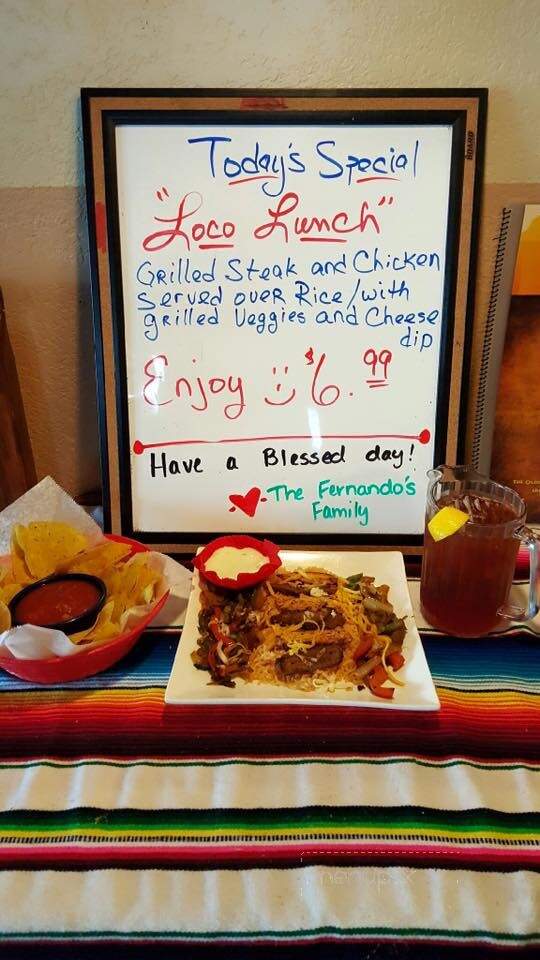 Today's Special
"Loco Lunch"
Grilled Steak and Chicken
Served over Rice/with
grilled Veggies and Cheese
dip
Enjoy :) $6.99
Have a Blessed day!
The Fernando's
Family
BOARD